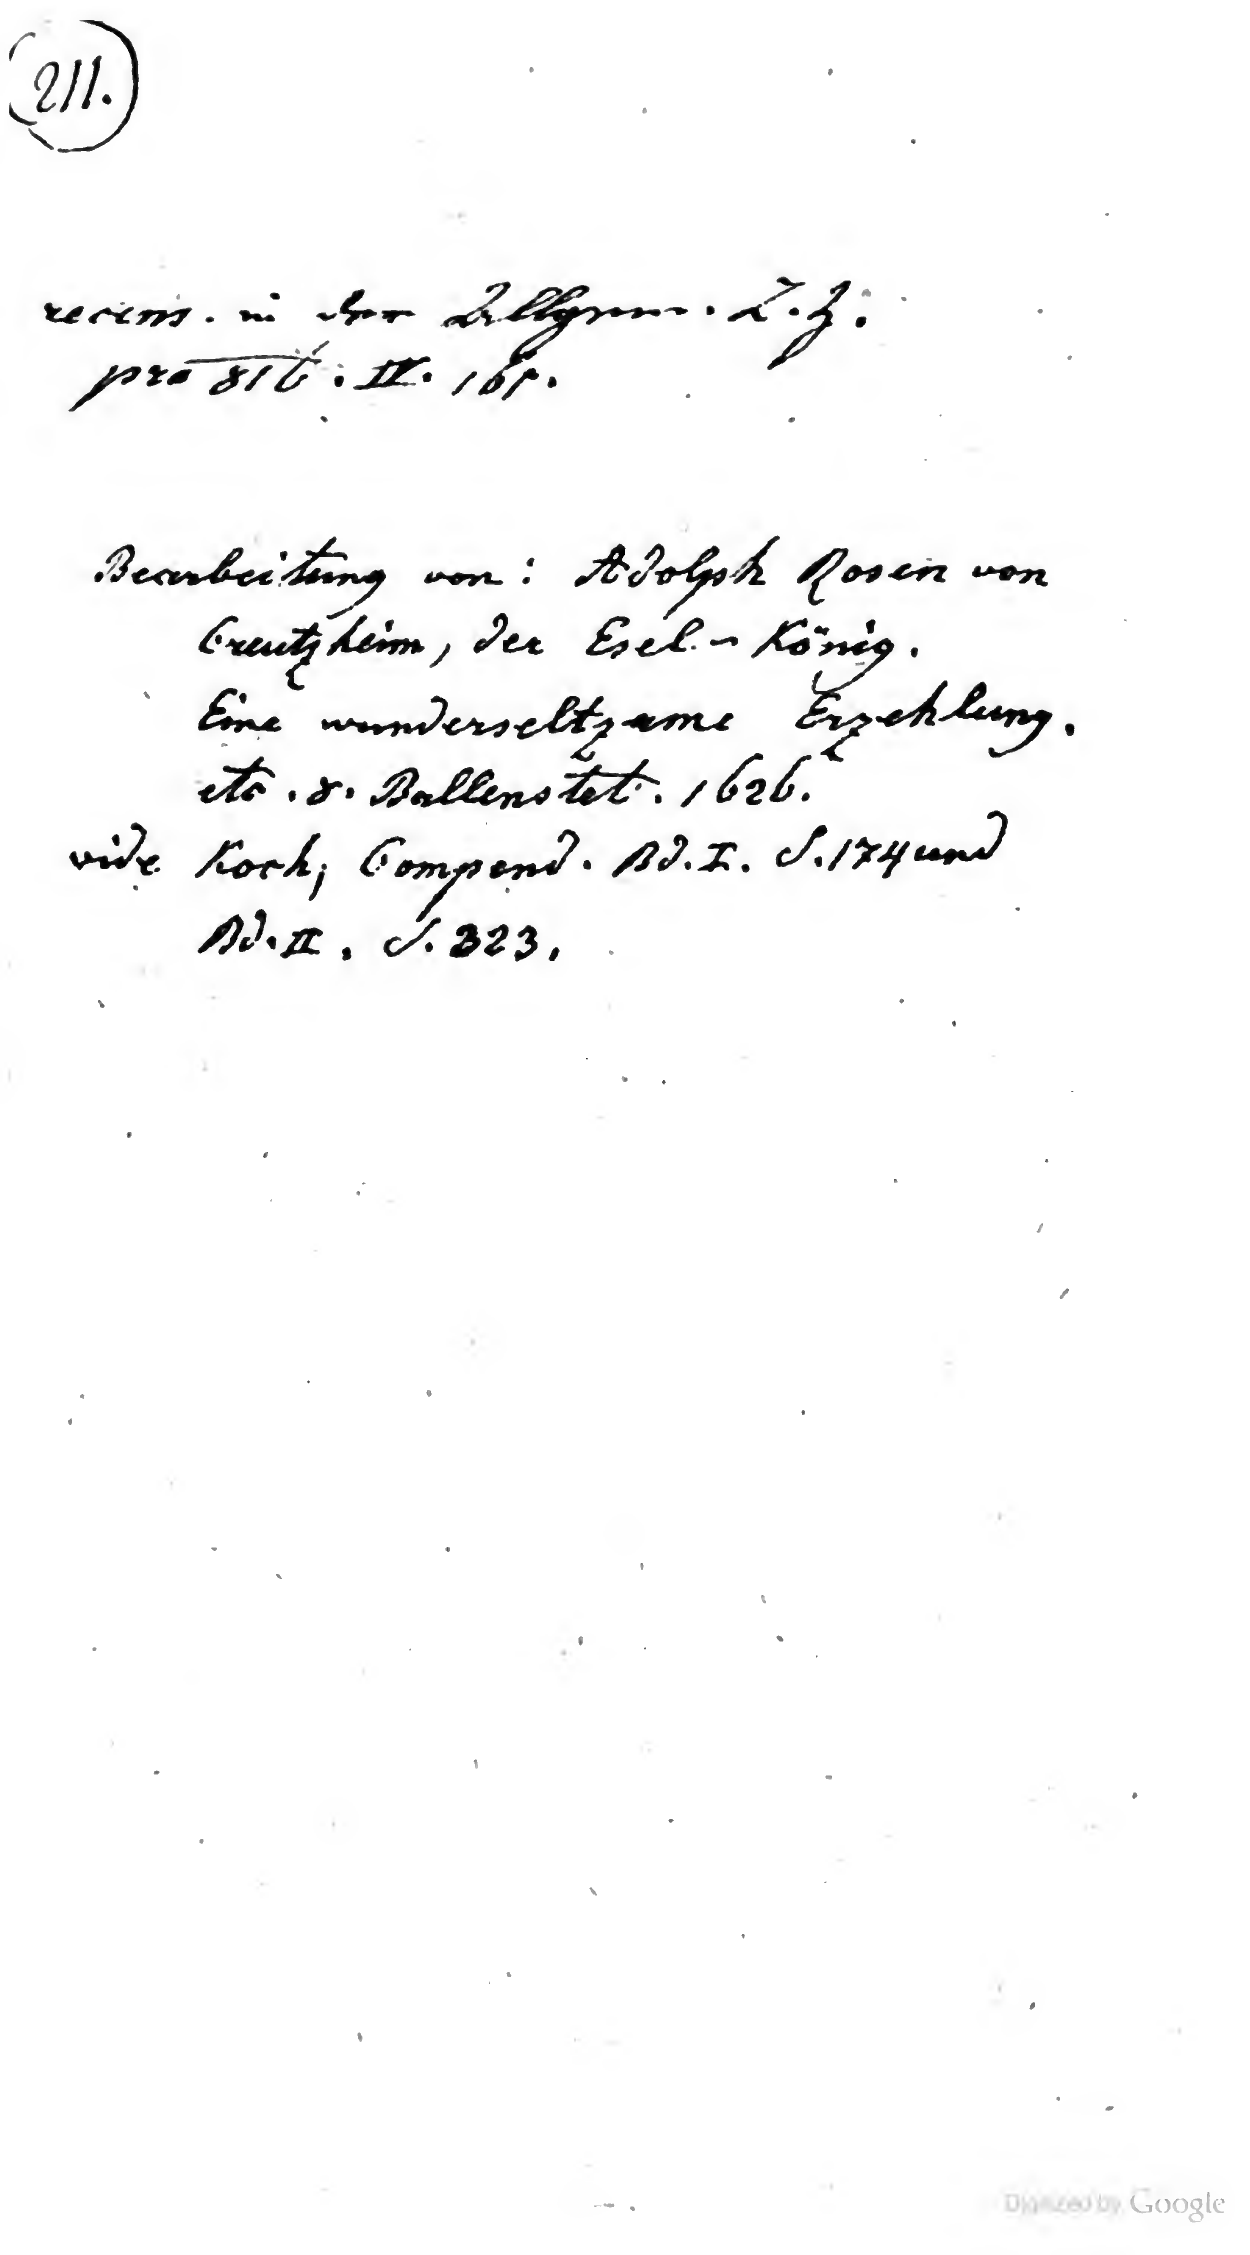 211.
recens. in der Allgem. L. Z.
pro 816. IV. 161.
Bearbeitung von: Adolph Rosen von
Creutzheim, der Esel-König.
Eine wunderseltzame Erzehlung.
etc. 8. Ballenstet. 1626.
vide Koch, Compend. Bd. I. S. 174 und
Bd. II. S. 323.
Digitized by Google